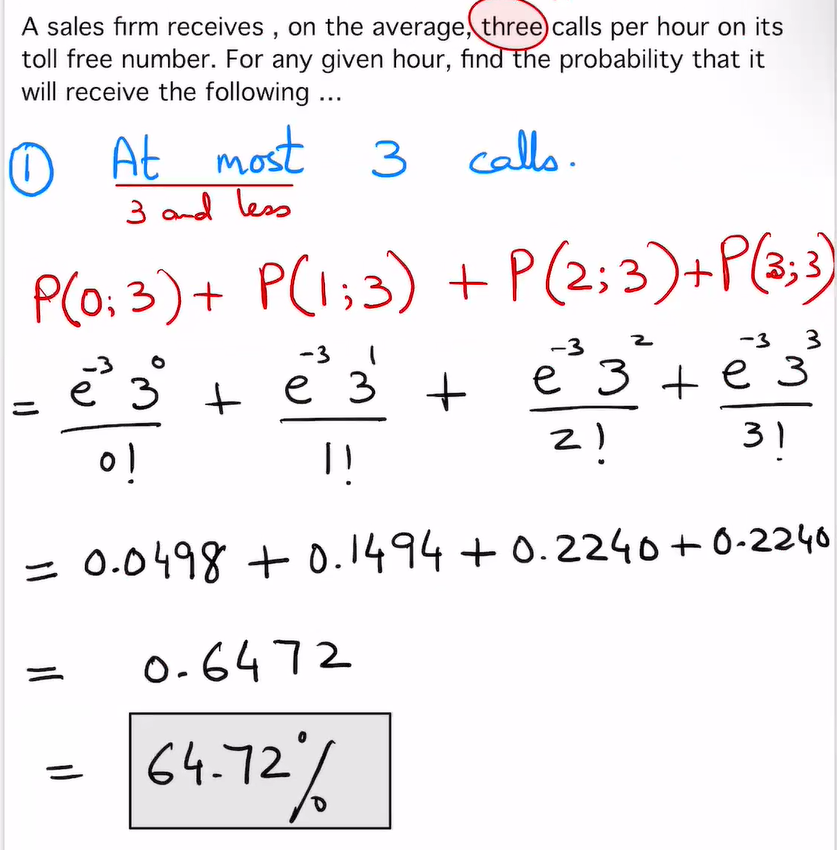 A sales firm receives , on the average, three calls per hour on its
toll free number. For any given hour, find the probability that it
will receive the following ...
① At most 3 calls.
3 and less
P(0;3) + P(1;3) + P(2;3) + P(3;3)
= e⁻³ 3⁰ / 0! + e⁻³ 3¹ / 1! + e⁻³ 3² / 2! + e⁻³ 3³ / 3!
= 0.0498 + 0.1494 + 0.2240 + 0.2240
= 0.6472
= 64.72%